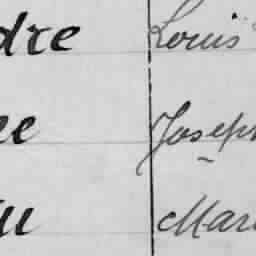 dre Louis
ee Joseph
u Mari